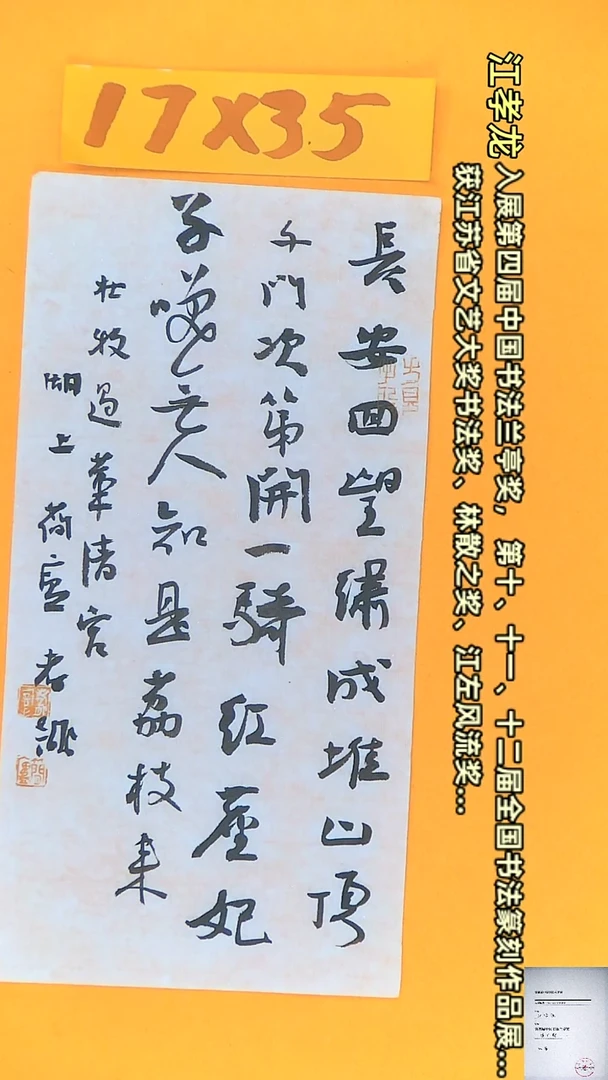 17X35
江孝龙 入展第四届中国书法兰亭奖，第十、十一、十二届全国书法篆刻作品展...
获江苏省文艺大奖书法奖、林散之奖、江左风流奖...
長安回望繡成堆山頂
千門次第開一騎紅塵妃
子喚無人知是荔枝来
杜牧過華清宮
湖上 孝龍